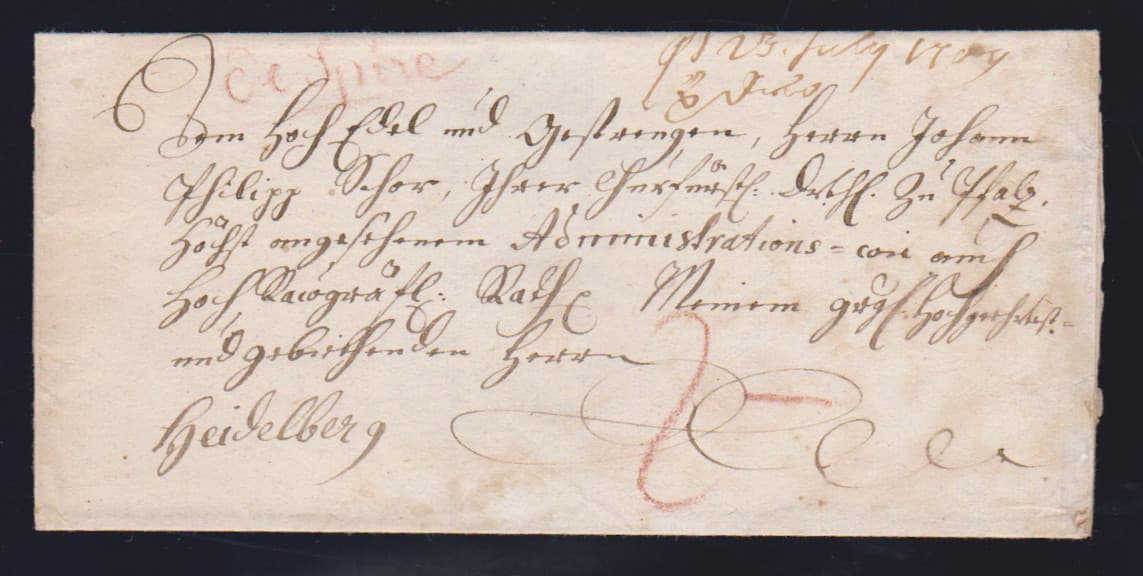 de Spire
23. July 1709
Dem Hoch Edel und Gestrengen, Herrn Johann
Philipp Schor, Ihrer Churfürstl: Drchl. Zu Pfaltz,
Höchst angesehenem Administrations= wie auch
Hoch Raugräfl: Rath Meinem Hochgeehrtest=
und gebiethenden Herrn
Heidelberg